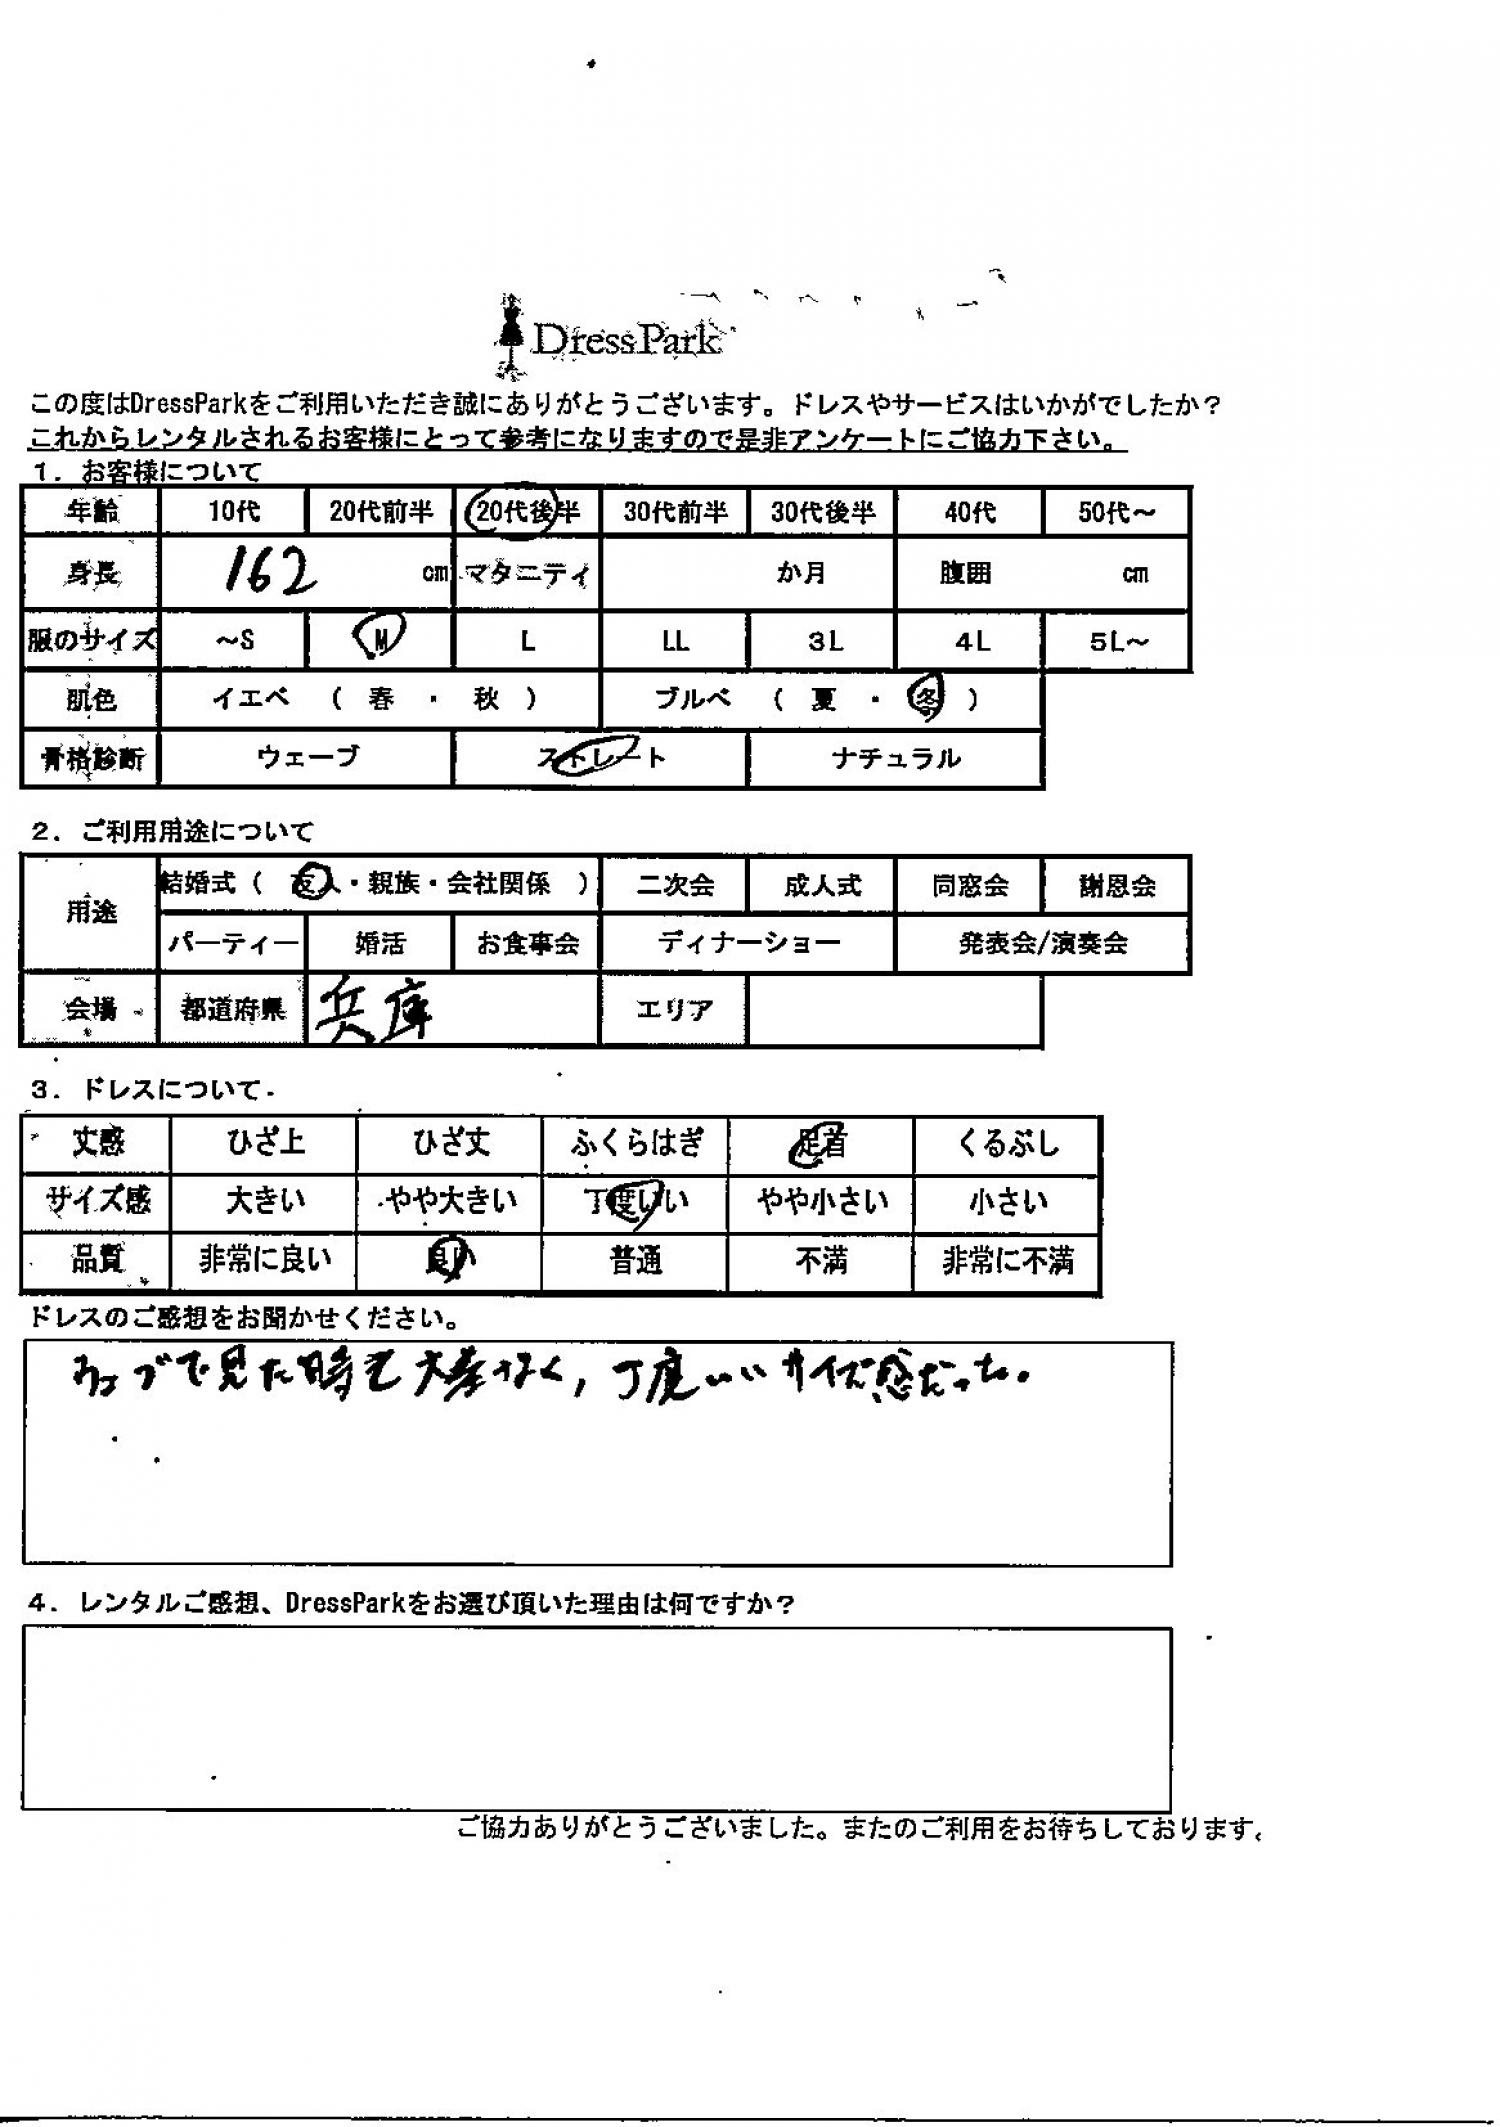 DressPark
この度はDressParkをご利用いただき誠にありがとうございます。ドレスやサービスはいかがでしたか？
これからレンタルされるお客様にとって参考になりますので是非アンケートにご協力下さい。
１．お客様について
年齢 10代 20代前半 20代後半 30代前半 30代後半 40代 50代～
身長 162 cm マタニティ か月 腹囲 cm
服のサイズ ～S M L LL 3L 4L 5L～
肌色 イエベ （ 春 ・ 秋 ） ブルベ （ 夏 ・ 冬 ）
骨格診断 ウェーブ ストレート ナチュラル
２．ご利用用途について
用途 結婚式（ 友人・親族・会社関係 ） 二次会 成人式 同窓会 謝恩会
パーティー 婚活 お食事会 ディナーショー 発表会/演奏会
会場 都道府県 兵庫 エリア
３．ドレスについて
丈感 ひざ上 ひざ丈 ふくらはぎ 足首 くるぶし
サイズ感 大きい やや大きい 丁度いい やや小さい 小さい
品質 非常に良い 良い 普通 不満 非常に不満
ドレスのご感想をお聞かせください。
ウェブで見た時と大差なく，丁度いいサイズ感だった。
４．レンタルご感想、DressParkをお選び頂いた理由は何ですか？
ご協力ありがとうございました。またのご利用をお待ちしております。